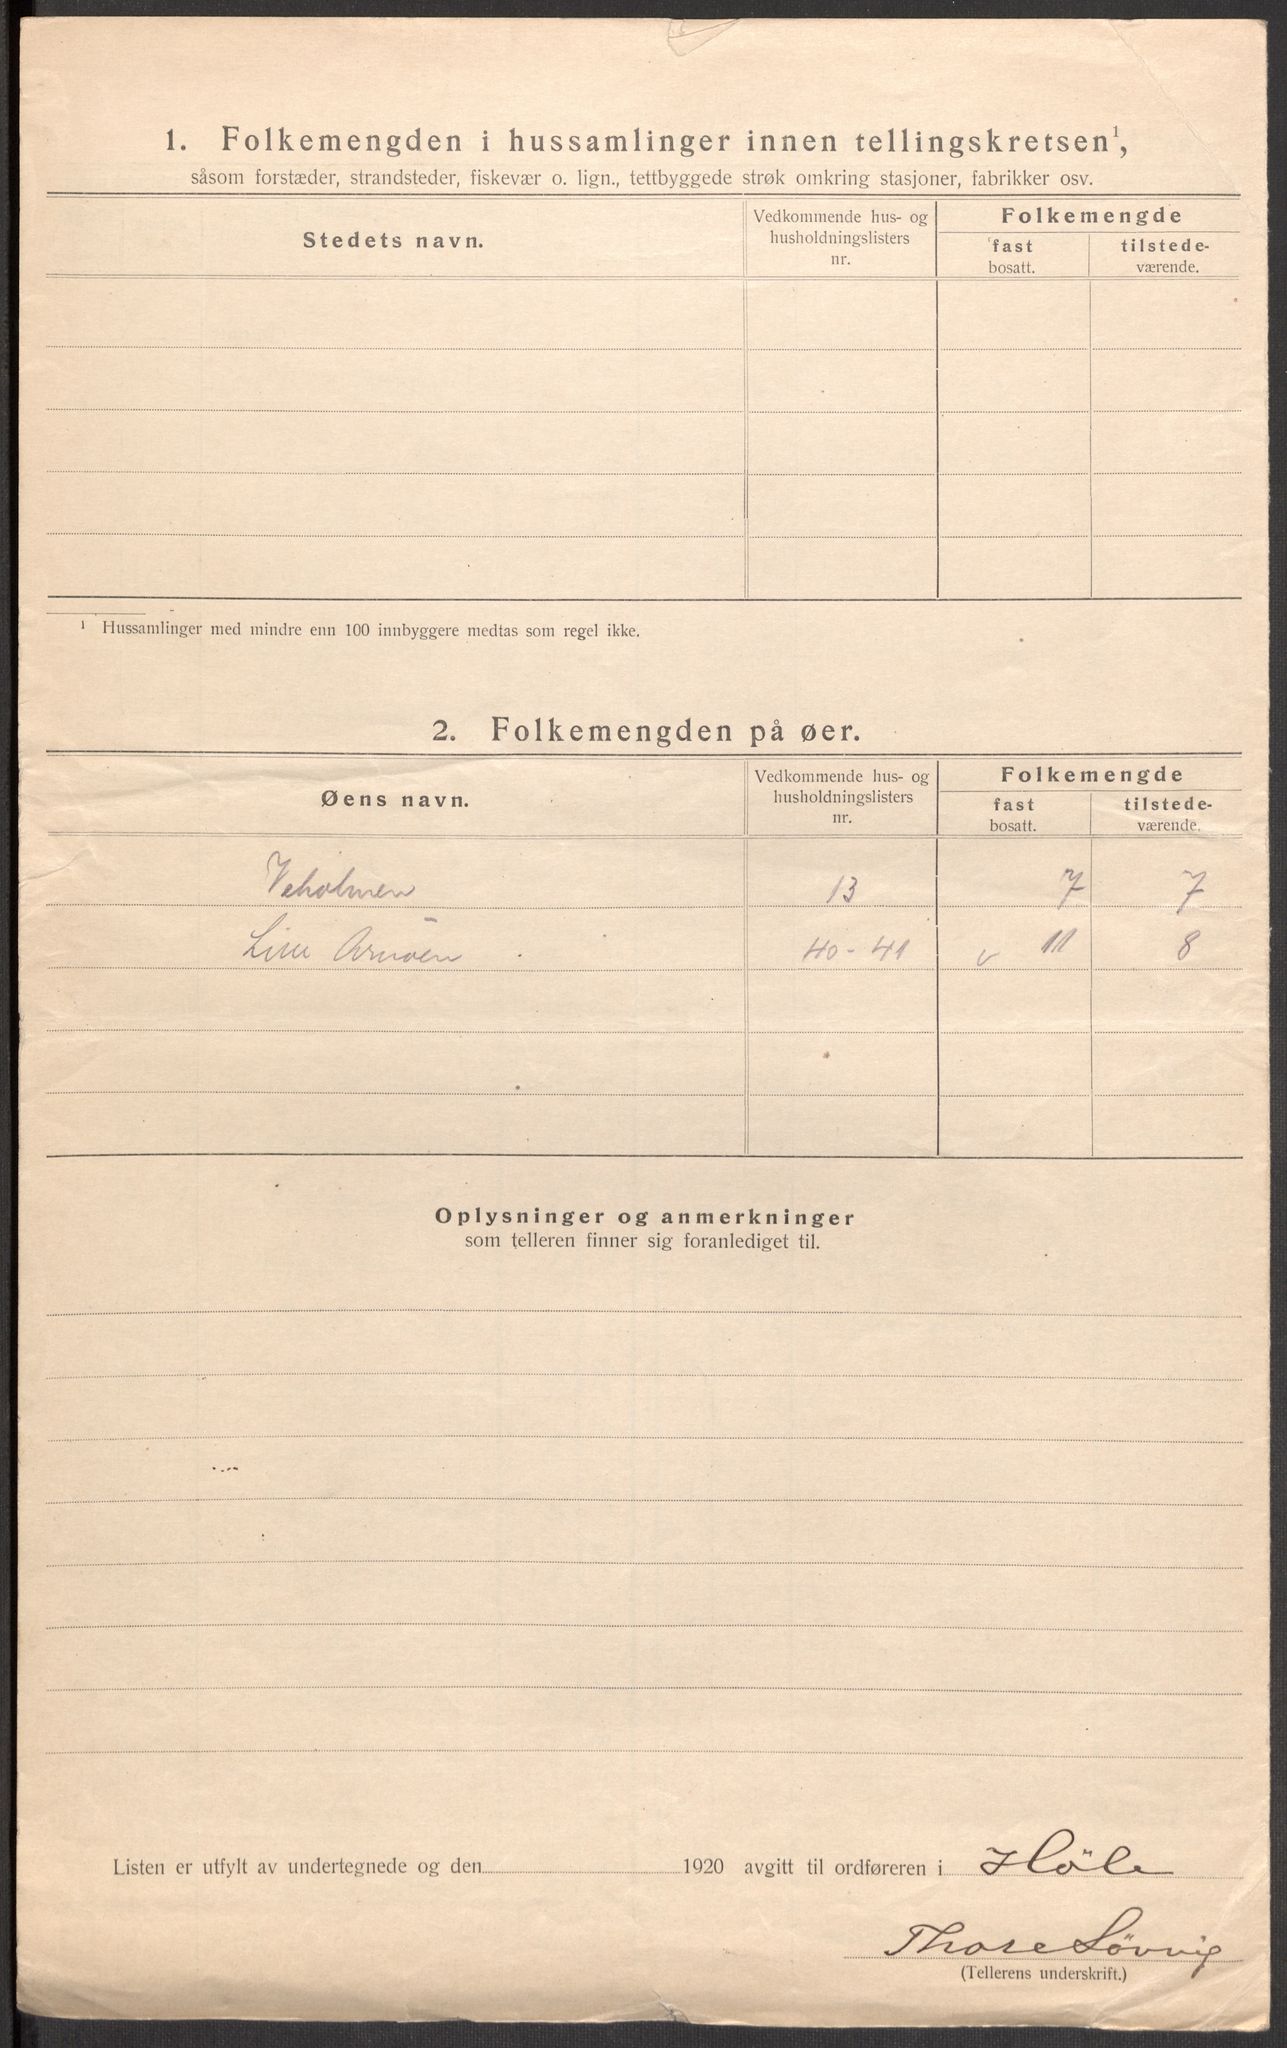 1. Folkemengden i hussamlinger innen tellingskretsen¹,
såsom forstæder, strandsteder, fiskevær o. lign., tettbyggede strøk omkring stasjoner, fabrikker osv.
Stedets navn.
Vedkommende hus- og
husholdningslisters
nr.
Folkemengde
fast
bosatt.
tilstede-
værende.
¹ Hussamlinger med mindre enn 100 innbyggere medtas som regel ikke.
2. Folkemengden på øer.
Øens navn.
Vedkommende hus- og
husholdningslisters
nr.
Folkemengde
fast
bosatt.
tilstede-
værende.
Veholmen 13 7 7
Lille Arnöen 40-41 v 11 8
Oplysninger og anmerkninger
som telleren finner sig foranlediget til.
Listen er utfylt av undertegnede og den 1920 avgitt til ordføreren i Höle
Thore Lövvig
(Tellerens underskrift.)